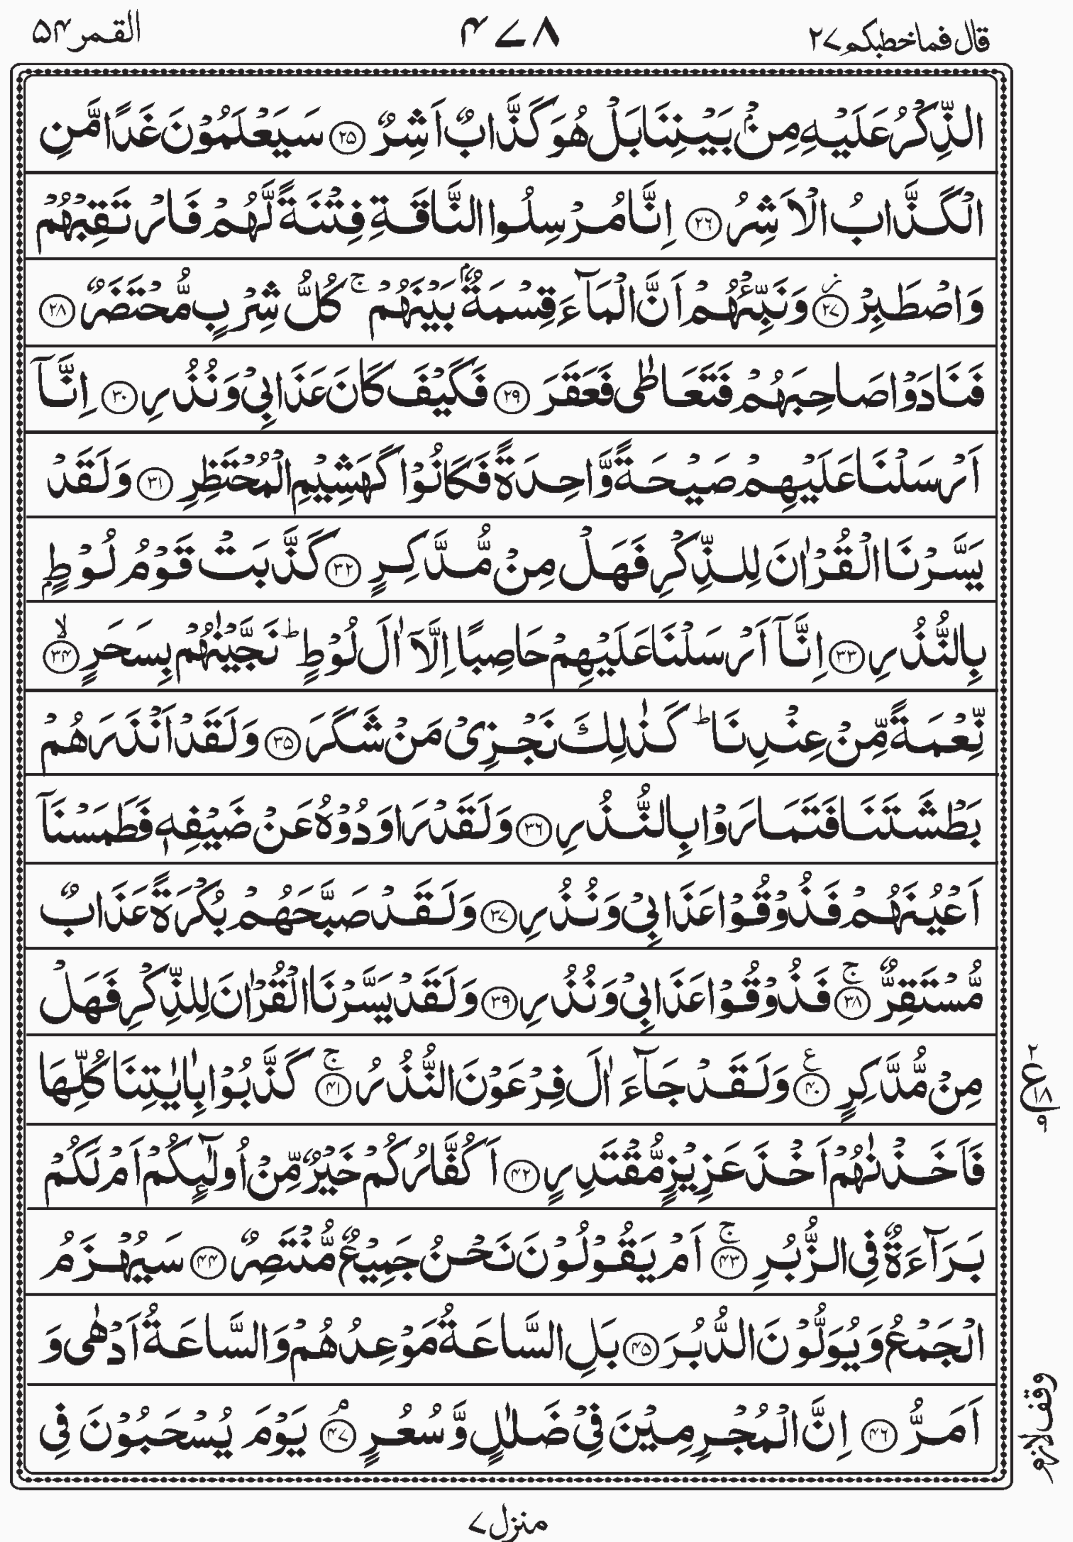 القمر ٥٤ ٤٧٨ قال فما خطبكم ٢٧
الذِّكْرُ عَلَيْهِ مِنْۢ بَيْنِنَا بَلْ هُوَ كَذَّابٌ اَشِرٌ ۝٢٥ سَيَعْلَمُوْنَ غَدًا مَّنِ
الْكَذَّابُ الْاَشِرُ ۝٢٦ اِنَّا مُرْسِلُوا النَّاقَةِ فِتْنَةً لَّهُمْ فَارْتَقِبْهُمْ
وَاصْطَبِرْ ۝٢٧ز وَنَبِّئْهُمْ اَنَّ الْمَآءَ قِسْمَةٌۢ بَيْنَهُمْ ۚ كُلُّ شِرْبٍ مُّحْتَضَرٌ ۝٢٨
فَنَادَوْا صَاحِبَهُمْ فَتَعَاطٰى فَعَقَرَ ۝٢٩ فَكَيْفَ كَانَ عَذَابِيْ وَنُذُرِ ۝٣٠ اِنَّآ
اَرْسَلْنَا عَلَيْهِمْ صَيْحَةً وَّاحِدَةً فَكَانُوْا كَهَشِيْمِ الْمُحْتَظِرِ ۝٣١ وَلَقَدْ
يَسَّرْنَا الْقُرْاٰنَ لِلذِّكْرِ فَهَلْ مِنْ مُّدَّكِرٍ ۝٣٢ كَذَّبَتْ قَوْمُ لُوْطٍۭ
بِالنُّذُرِ ۝٣٣ اِنَّآ اَرْسَلْنَا عَلَيْهِمْ حَاصِبًا اِلَّآ اٰلَ لُوْطٍ ؕ نَجَّيْنٰهُمْ بِسَحَرٍ ۝٣٤ۙ
نِّعْمَةً مِّنْ عِنْدِنَا ؕ كَذٰلِكَ نَجْزِيْ مَنْ شَكَرَ ۝٣٥ وَلَقَدْ اَنْذَرَهُمْ
بَطْشَتَنَا فَتَمَارَوْا بِالنُّذُرِ ۝٣٦ وَلَقَدْ رَاوَدُوْهُ عَنْ ضَيْفِهٖ فَطَمَسْنَآ
اَعْيُنَهُمْ فَذُوْقُوْا عَذَابِيْ وَنُذُرِ ۝٣٧ وَلَقَدْ صَبَّحَهُمْ بُكْرَةً عَذَابٌ
مُّسْتَقِرٌّ ۝٣٨ۚ فَذُوْقُوْا عَذَابِيْ وَنُذُرِ ۝٣٩ وَلَقَدْ يَسَّرْنَا الْقُرْاٰنَ لِلذِّكْرِ فَهَلْ
مِنْ مُّدَّكِرٍ ۝٤٠ع وَلَقَدْ جَآءَ اٰلَ فِرْعَوْنَ النُّذُرُ ۝٤١ۚ كَذَّبُوْا بِاٰيٰتِنَا كُلِّهَا
فَاَخَذْنٰهُمْ اَخْذَ عَزِيْزٍ مُّقْتَدِرٍ ۝٤٢ اَكُفَّارُكُمْ خَيْرٌ مِّنْ اُولٰٓئِكُمْ اَمْ لَكُمْ
بَرَآءَةٌ فِي الزُّبُرِ ۝٤٣ۚ اَمْ يَقُوْلُوْنَ نَحْنُ جَمِيْعٌ مُّنْتَصِرٌ ۝٤٤ سَيُهْزَمُ
الْجَمْعُ وَيُوَلُّوْنَ الدُّبُرَ ۝٤٥ بَلِ السَّاعَةُ مَوْعِدُهُمْ وَالسَّاعَةُ اَدْهٰى وَ
اَمَرُّ ۝٤٦ اِنَّ الْمُجْرِمِيْنَ فِيْ ضَلٰلٍ وَّسُعُرٍ ۝٤٧ۘ يَوْمَ يُسْحَبُوْنَ فِي
٢
ع ١٨
٩
وقف لازم
منزل ٧